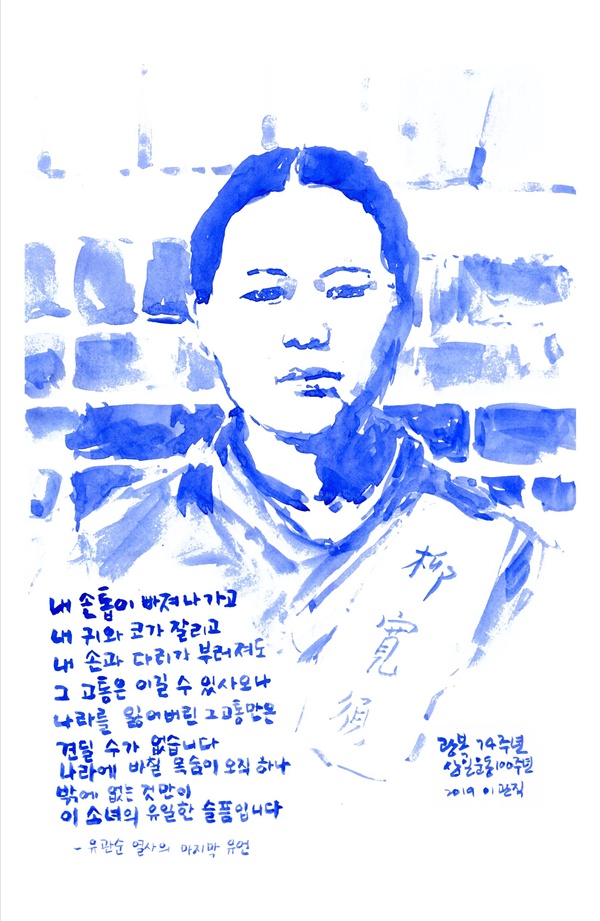 柳
寬
順
내 손톱이 빠져나가고
내 귀와 코가 잘리고
내 손과 다리가 부러져도
그 고통은 이길 수 있사오나
나라를 잃어버린 그 고통만은
견딜 수가 없습니다
나라에 바칠 목숨이 오직 하나
밖에 없는 것만이
이 소녀의 유일한 슬픔입니다
- 유관순 열사의 마지막 유언
광복 74주년
삼일운동100주년
2019 이관직